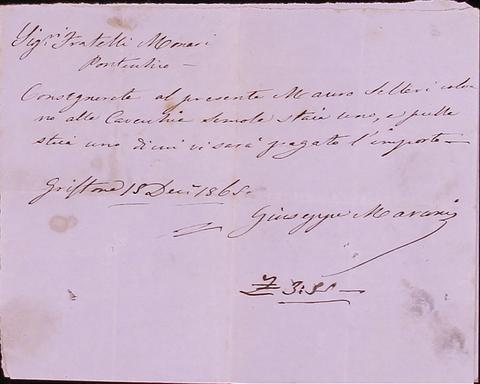 Sig.ri Fratelli Monari
Pontechio —
Consegnerete al presente Mauro Selleri colo-
no alla Semole staia uno, e
staia uno di cui vi sarà pagato l'importo —
Griffone 18 Dec. 1865.
Giuseppe
3: